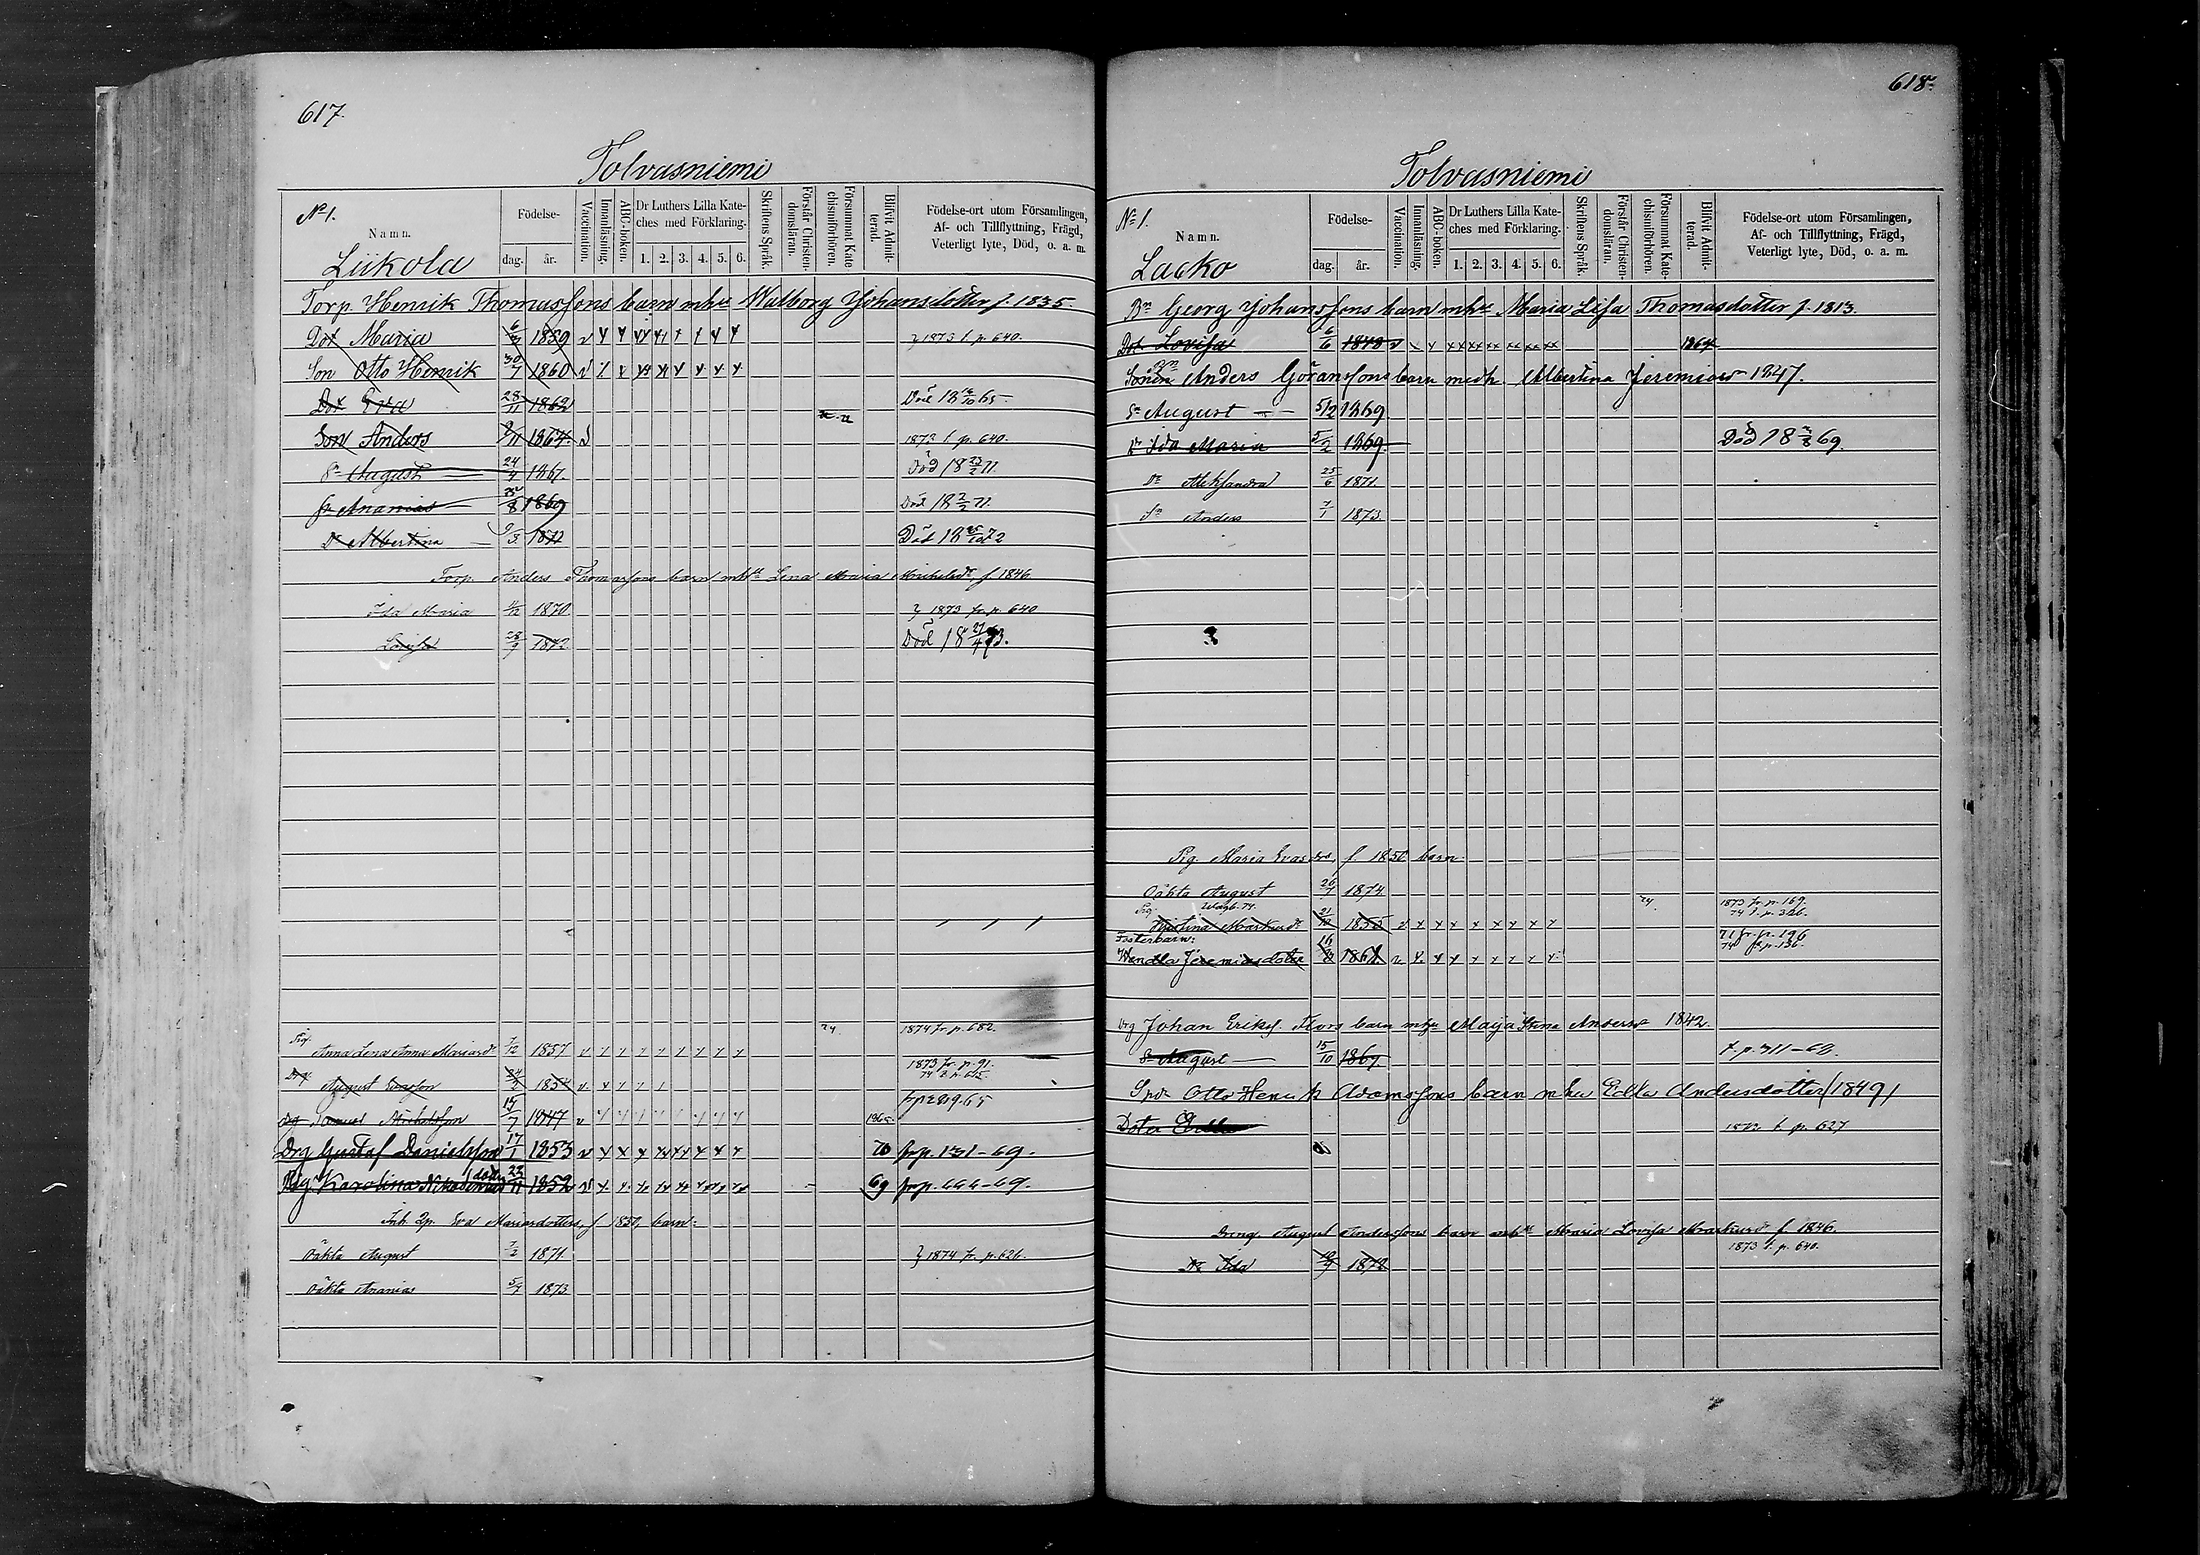 617.
Tolvasniemi
No 1.
Namn.
Liikola
Födelse-
dag.
år.
Vaccination.
Innanläsning.
ABC-boken.
Dr Luthers Lilla Kate-
ches med Förklaring.
1. 2. 3. 4. 5. 6.
Skriftens Språk.
Förstår Christen-
domsläran.
Försummat Kate
chismiförhören.
Blifvit Admit-
terad.
Födelse-ort utom Församlingen,
Af- och Tillflyttning, Frägd,
Veterligt lyte, Död, o. a. m.
Torp. Henrik Thomassons barn mhu Walborg Johansdotter f. 1835.
Dot Maria 1859 } 1873 t. p. 640.
Son Otto Henrik 30/7 1860
Dot Eva 28/11 1862
Son Anders 1864 1873 t. p. 640.
Sn August 24/4 1867.
Sn Ananias 1869
Dr Albertina 1872
Torp. Anders Thomassons barn mhu Lena Maria Michelsdr f 1846
Ida Maria 1870 } 1873 fr. p. 640
Lovisa 28/9 1872
Pig. Anna Lena Anna Mariasdr 1857 74. 1874 fr. p. 682.
Drg. August Evasson 1854 1873 fr. p. 91.
Drg Samuel Michelsson 15/7 1847 1865
Drg Gustaf Danielsson 17/1 1853 70 frp. 131-69.
Pig. Karolina 23/11 1852 69 frp. 444-69.
Inh. Qp. Eva Mariasdotters, f 1850, barn:
Oäkta August 7/2 1871. } 1874 fr. p. 626.
Oäkta Ananias 1873
618.
Tolvasniemi
No 1.
Namn.
Lacko
Födelse-
dag.
år.
Vaccination.
Innanläsning.
ABC-boken.
Dr Luthers Lilla Kate-
ches med Förklaring.
1. 2. 3. 4. 5. 6.
Skriftens Språk.
Förstår Christen-
domsläran.
Försummat Kate-
chismiförhören.
Blifvit Admit-
terad.
Födelse-ort utom Församlingen,
Af- och Tillflyttning, Frägd,
Veterligt lyte, Död, o. a. m.
Bn Georg Johanssons barn mhu Maria Lisa Thomasdotter f. 1813.
Dot Lovisa 6/6 1848 1864
Sonen Anders Göranssons barn medh. Albertina Jeremiasd 1847.
Sn August 5/2 1869
Dr Ida Maria 5/2 1869 Död 18 69.
Dr Aleksandra 25/6 1871.
Sn Anders 7/1 1873.
Pig. Maria Evasdrs, f 1850 barn
Oäkta August 26/7 1874
Pig. Kristina Markusdr 1855 74. 1873 fr. p. 169.
74 t. p. 326.
Fosterbarn:
Wendla Jeremiasdotter 71 fr. p. 196
74 p. 136.
Drg Johan Eriks. Flors barn mhu Maija Stina Andersd 1842.
Sn August 15/10 1867. t. p. 711-68.
Otto Henrik Adamssons barn mhu Edla Andersdotter (1849)
Doter 1872 t. p. 627
Dreng. August Anderssons barn mhu Maria Lovisa Markusdr f 1846.
Dr Ida 1872 1873 t. p. 640.